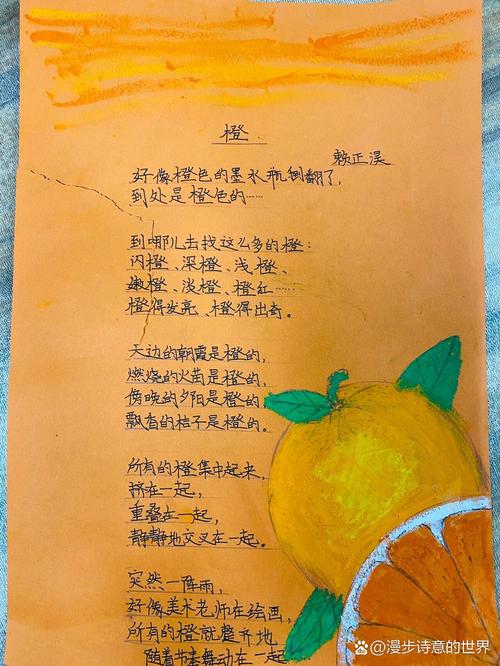 橙
赖正淏
好像橙色的墨水瓶倒翻了,
到处是橙色的……
到哪儿去找这么多的橙:
闪橙、深橙、浅橙、
嫩橙、淡橙、橙红……
橙得发亮、橙得出奇。
天边的朝霞是橙的,
燃烧的火苗是橙的,
傍晚的夕阳是橙的
飘香的桔子是橙的。
所有的橙集中起来,
挤在一起,
重叠在一起,
静静地交叉在一起。
突然一阵雨,
好像美术老师在绘画,
所有的橙就整齐地
随着节奏舞动在一起……
漫步诗意的世界